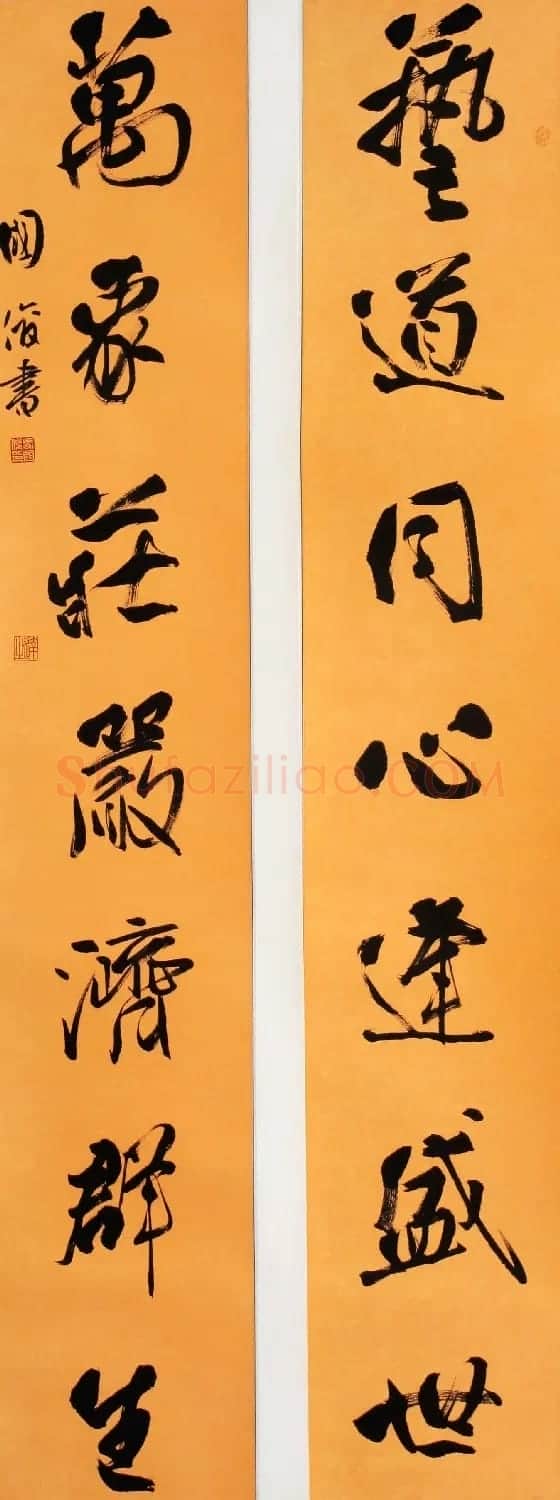 藝道同心逢盛世
萬象莊嚴濟群生
國俊書
Shufaziliao.COM